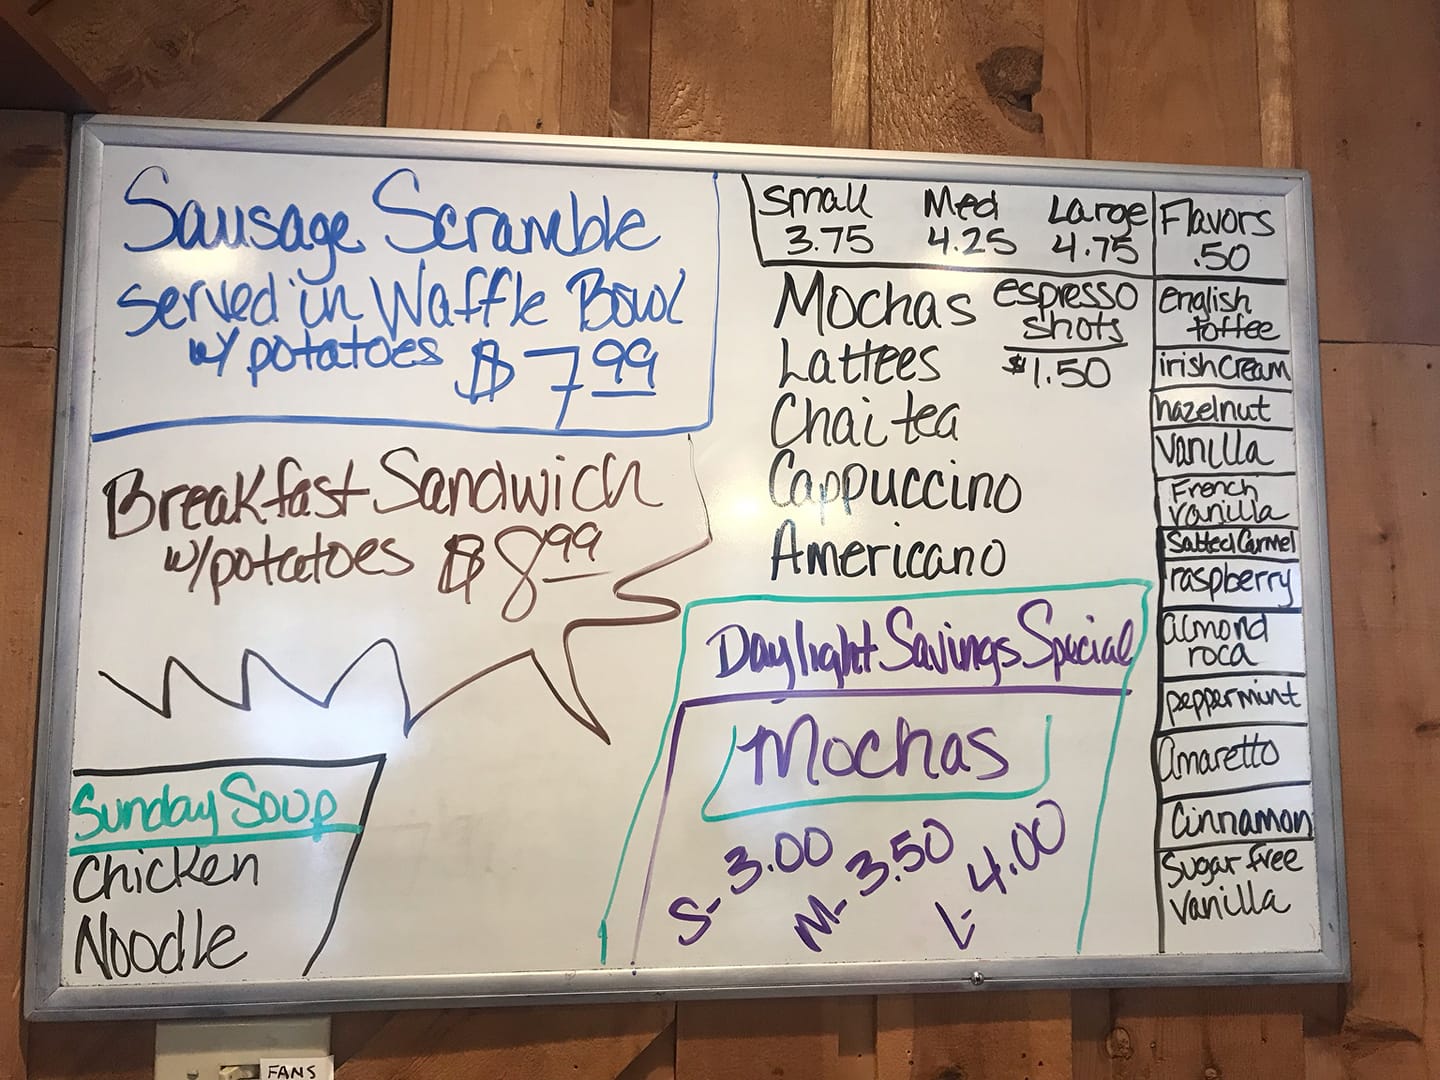 Sausage Scramble
served in Waffle Bowl
w/ potatoes $7.99
Breakfast Sandwich
w/potatoes $8.99
Sunday Soup
Chicken
Noodle
Small Med Large
3.75 4.25 4.75
Mochas
Lattees
Chai tea
Cappuccino
Americano
espresso
shots
$1.50
Daylight Savings Special
Mochas
S- 3.00
M- 3.50
L- 4.00
Flavors
.50
english
toffee
irish cream
hazelnut
Vanilla
French
vanilla
Salted Carmel
raspberry
almond
roca
peppermint
Amaretto
Cinnamon
Sugar free
vanilla
FANS